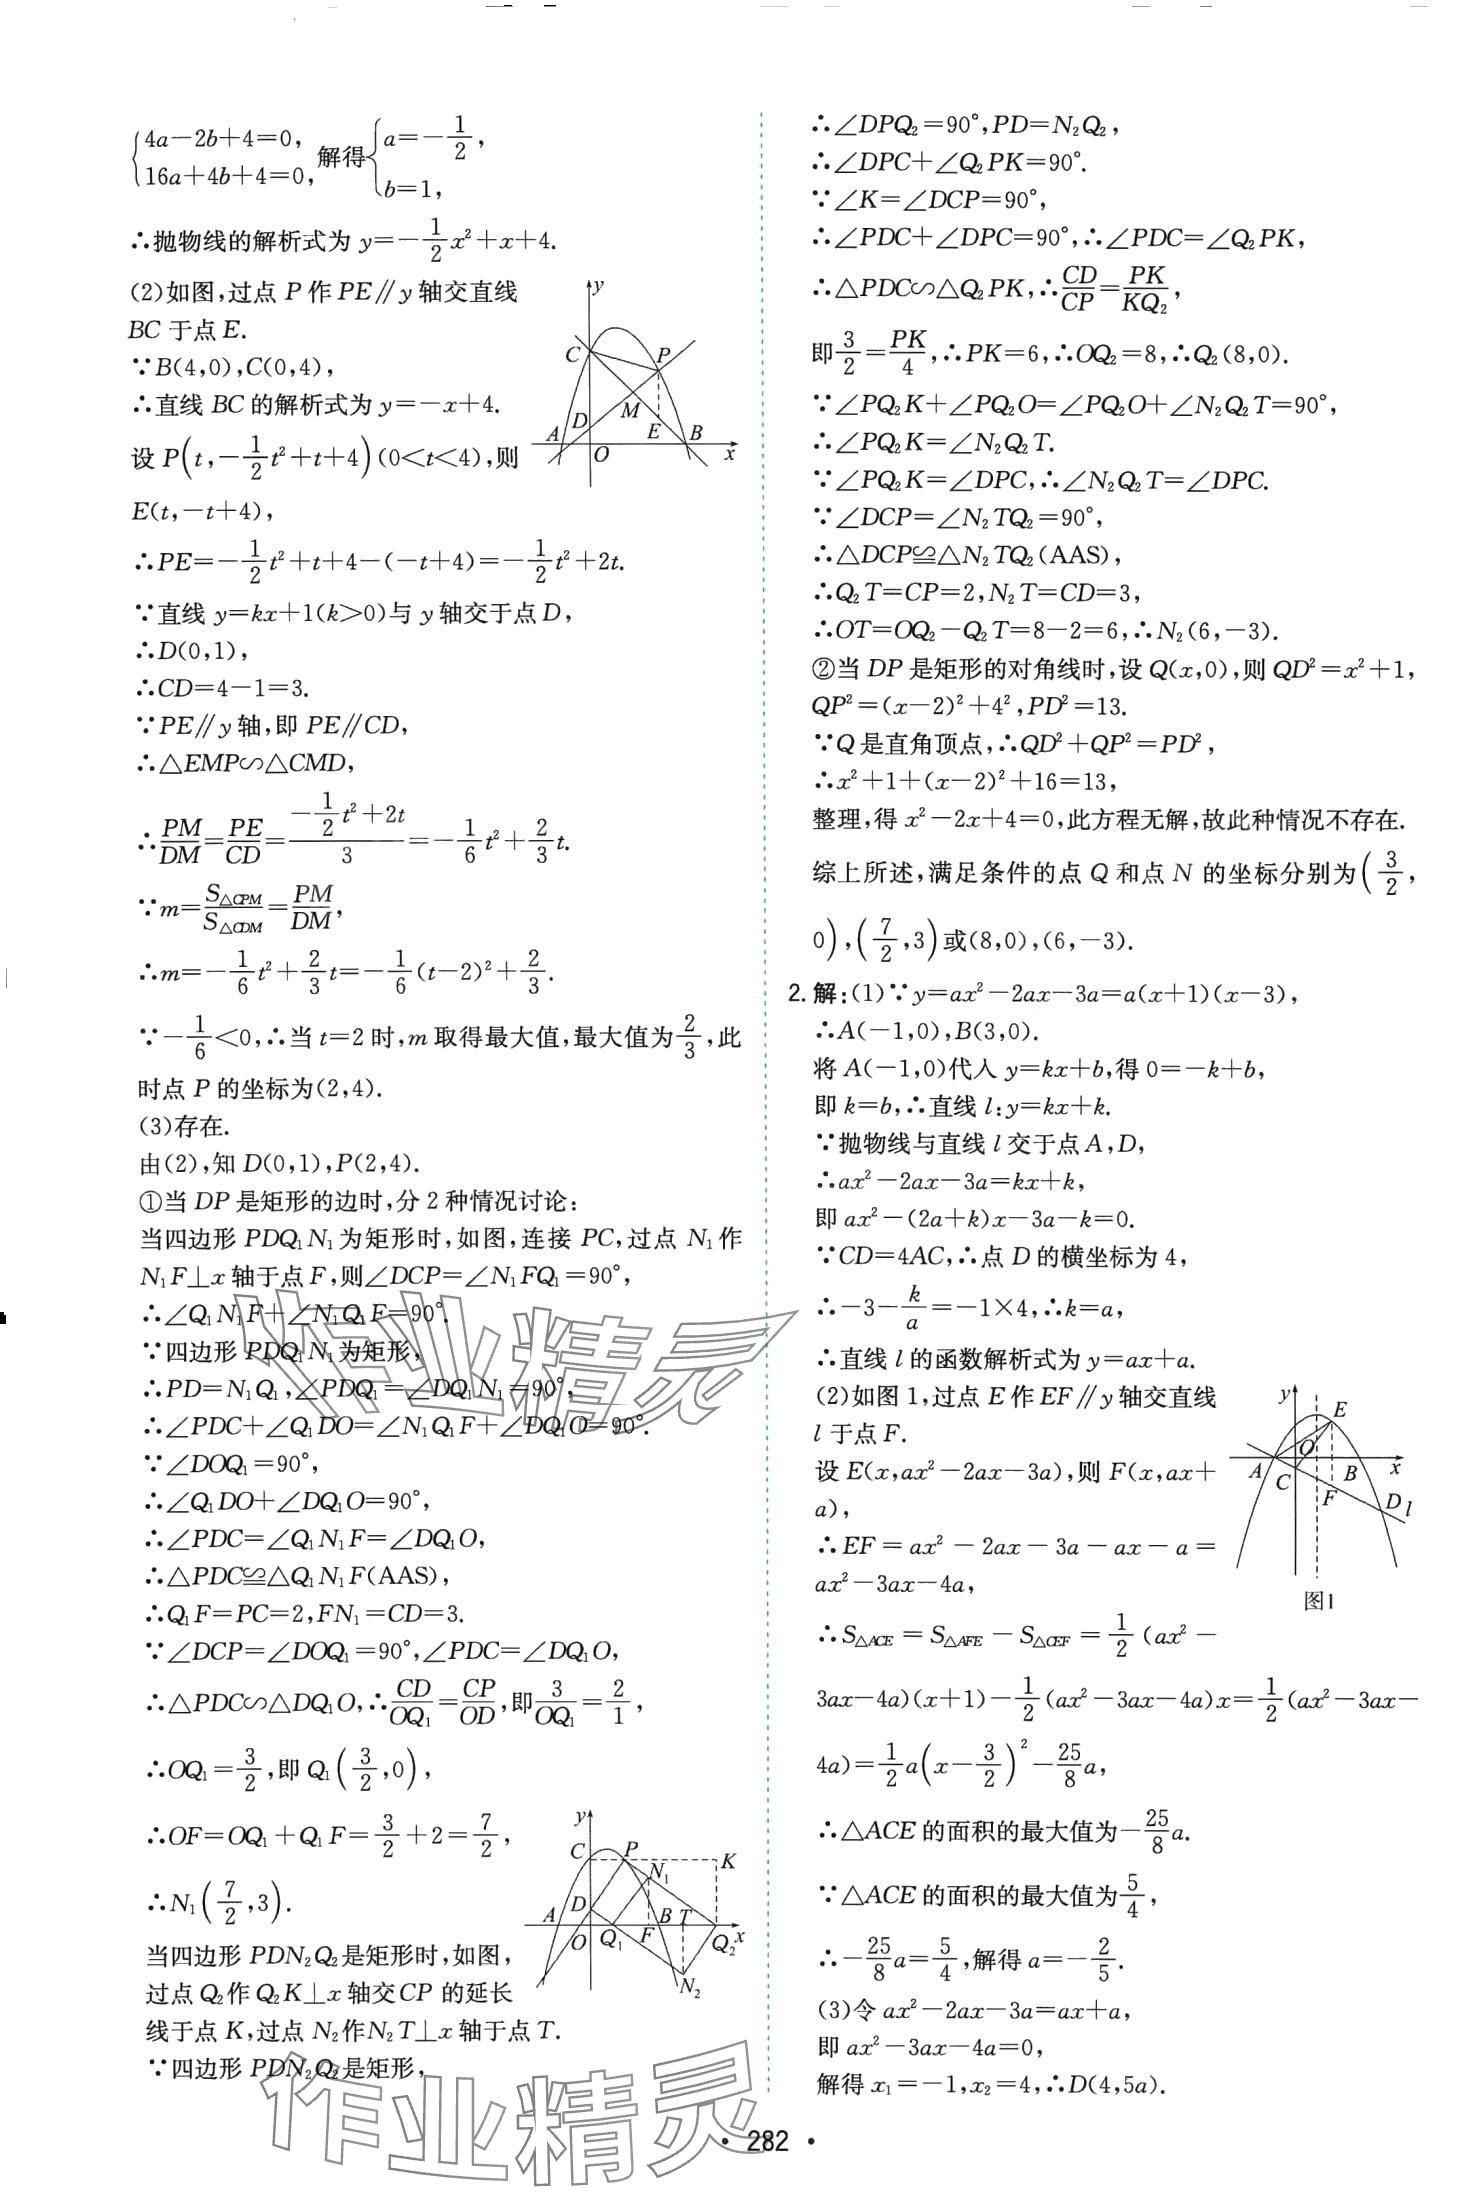 {4a-2b+4=0, 16a+4b+4=0, 解得 {a=-1/2, b=1,
∴抛物线的解析式为 y=-1/2x²+x+4.
(2)如图,过点 P 作 PE∥y 轴交直线
BC 于点 E.
∵B(4,0),C(0,4),
∴直线 BC 的解析式为 y=-x+4.
设 P(t,-1/2t²+t+4)(0<t<4),则
E(t,-t+4),
∴PE=-1/2t²+t+4-(-t+4)=-1/2t²+2t.
∵直线 y=kx+1(k>0)与 y 轴交于点 D,
∴D(0,1),
∴CD=4-1=3.
∵PE∥y 轴,即 PE∥CD,
∴△EMP∽△CMD,
∴PM/DM=PE/CD=(-1/2t²+2t)/3=-1/6t²+2/3t.
∵m=S△CPM/S△CDM=PM/DM,
∴m=-1/6t²+2/3t=-1/6(t-2)²+2/3.
∵-1/6<0,∴当 t=2 时,m 取得最大值,最大值为2/3,此
时点 P 的坐标为(2,4).
(3)存在.
由(2),知 D(0,1),P(2,4).
①当 DP 是矩形的边时,分 2 种情况讨论:
当四边形 PDQ₁N₁为矩形时,如图,连接 PC,过点 N₁作
N₁F⊥x 轴于点 F,则∠DCP=∠N₁FQ₁=90°,
∴∠Q₁N₁F+∠N₁Q₁F=90°.
∵四边形 PDQ₁N₁为矩形,
∴PD=N₁Q₁,∠PDQ₁=∠DQ₁N₁=90°,
∴∠PDC+∠Q₁DO=∠N₁Q₁F+∠DQ₁O=90°.
∵∠DOQ₁=90°,
∴∠Q₁DO+∠DQ₁O=90°,
∴∠PDC=∠Q₁N₁F=∠DQ₁O,
∴△PDC≌△Q₁N₁F(AAS),
∴Q₁F=PC=2,FN₁=CD=3.
∵∠DCP=∠DOQ₁=90°,∠PDC=∠DQ₁O,
∴△PDC∽△DQ₁O,∴CD/OQ₁=CP/OD,即3/OQ₁=2/1,
∴OQ₁=3/2,即 Q₁(3/2,0),
∴OF=OQ₁+Q₁F=3/2+2=7/2,
∴N₁(7/2,3).
当四边形 PDN₂Q₂是矩形时,如图,
过点 Q₂作 Q₂K⊥x 轴交 CP 的延长
线于点 K,过点 N₂作N₂T⊥x 轴于点 T.
∵四边形 PDN₂Q₂是矩形,
y
C
P
D
M
A
E
B
O
x
y
C
P
K
N₁
D
A
F
B
T
O
Q₁
Q₂
x
N₂
∴∠DPQ₂=90°,PD=N₂Q₂,
∴∠DPC+∠Q₂PK=90°.
∵∠K=∠DCP=90°,
∴∠PDC+∠DPC=90°,∴∠PDC=∠Q₂PK,
∴△PDC∽△Q₂PK,∴CD/CP=PK/KQ₂,
即3/2=PK/4,∴PK=6,∴OQ₂=8,∴Q₂(8,0).
∵∠PQ₂K+∠PQ₂O=∠PQ₂O+∠N₂Q₂T=90°,
∴∠PQ₂K=∠N₂Q₂T.
∵∠PQ₂K=∠DPC,∴∠N₂Q₂T=∠DPC.
∵∠DCP=∠N₂TQ₂=90°,
∴△DCP≌△N₂TQ₂(AAS),
∴Q₂T=CP=2,N₂T=CD=3,
∴OT=OQ₂-Q₂T=8-2=6,∴N₂(6,-3).
②当 DP 是矩形的对角线时,设 Q(x,0),则 QD²=x²+1,
QP²=(x-2)²+4²,PD²=13.
∵Q 是直角顶点,∴QD²+QP²=PD²,
∴x²+1+(x-2)²+16=13,
整理,得 x²-2x+4=0,此方程无解,故此种情况不存在.
综上所述,满足条件的点 Q 和点 N 的坐标分别为(3/2,
0),(7/2,3)或(8,0),(6,-3).
2. 解:(1)∵y=ax²-2ax-3a=a(x+1)(x-3),
∴A(-1,0),B(3,0).
将 A(-1,0)代入 y=kx+b,得 0=-k+b,
即 k=b,∴直线 l:y=kx+k.
∵抛物线与直线 l 交于点 A,D,
∴ax²-2ax-3a=kx+k,
即 ax²-(2a+k)x-3a-k=0.
∵CD=4AC,∴点 D 的横坐标为 4,
∴-3-k/a=-1×4,∴k=a,
∴直线 l 的函数解析式为 y=ax+a.
(2)如图 1,过点 E 作 EF∥y 轴交直线
l 于点 F.
设 E(x,ax²-2ax-3a),则 F(x,ax+
a),
∴EF=ax²-2ax-3a-ax-a=
ax²-3ax-4a,
∴S△ACE=S△AFE-S△CEF=1/2(ax²-
3ax-4a)(x+1)-1/2(ax²-3ax-4a)x=1/2(ax²-3ax-
4a)=1/2a(x-3/2)²-25/8a,
∴△ACE 的面积的最大值为-25/8a.
∵△ACE 的面积的最大值为5/4,
∴-25/8a=5/4,解得 a=-2/5.
(3)令 ax²-2ax-3a=ax+a,
即 ax²-3ax-4a=0,
解得 x₁=-1,x₂=4,∴D(4,5a).
y
E
O
A
C
F
B
x
D
l
图1
作业精灵
作业精灵
· 282 ·